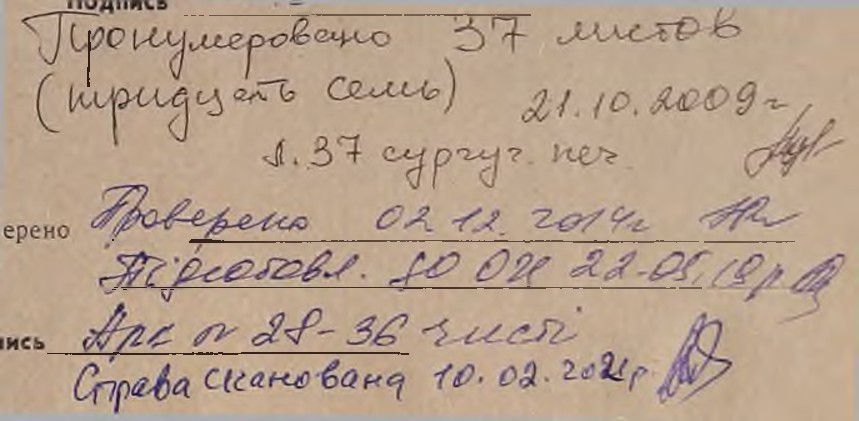 Подпись
Пронумеровано 37 листов
(тридцать семь) 21.10.2009 г.
л. 37 сургуч. печ.
ерено Проверено 02 12. 2014г
Підготовл. до ОЦ 22-05.19р
ись Арк № 28-36 чисті
Справа сканована 10.02.2021р.